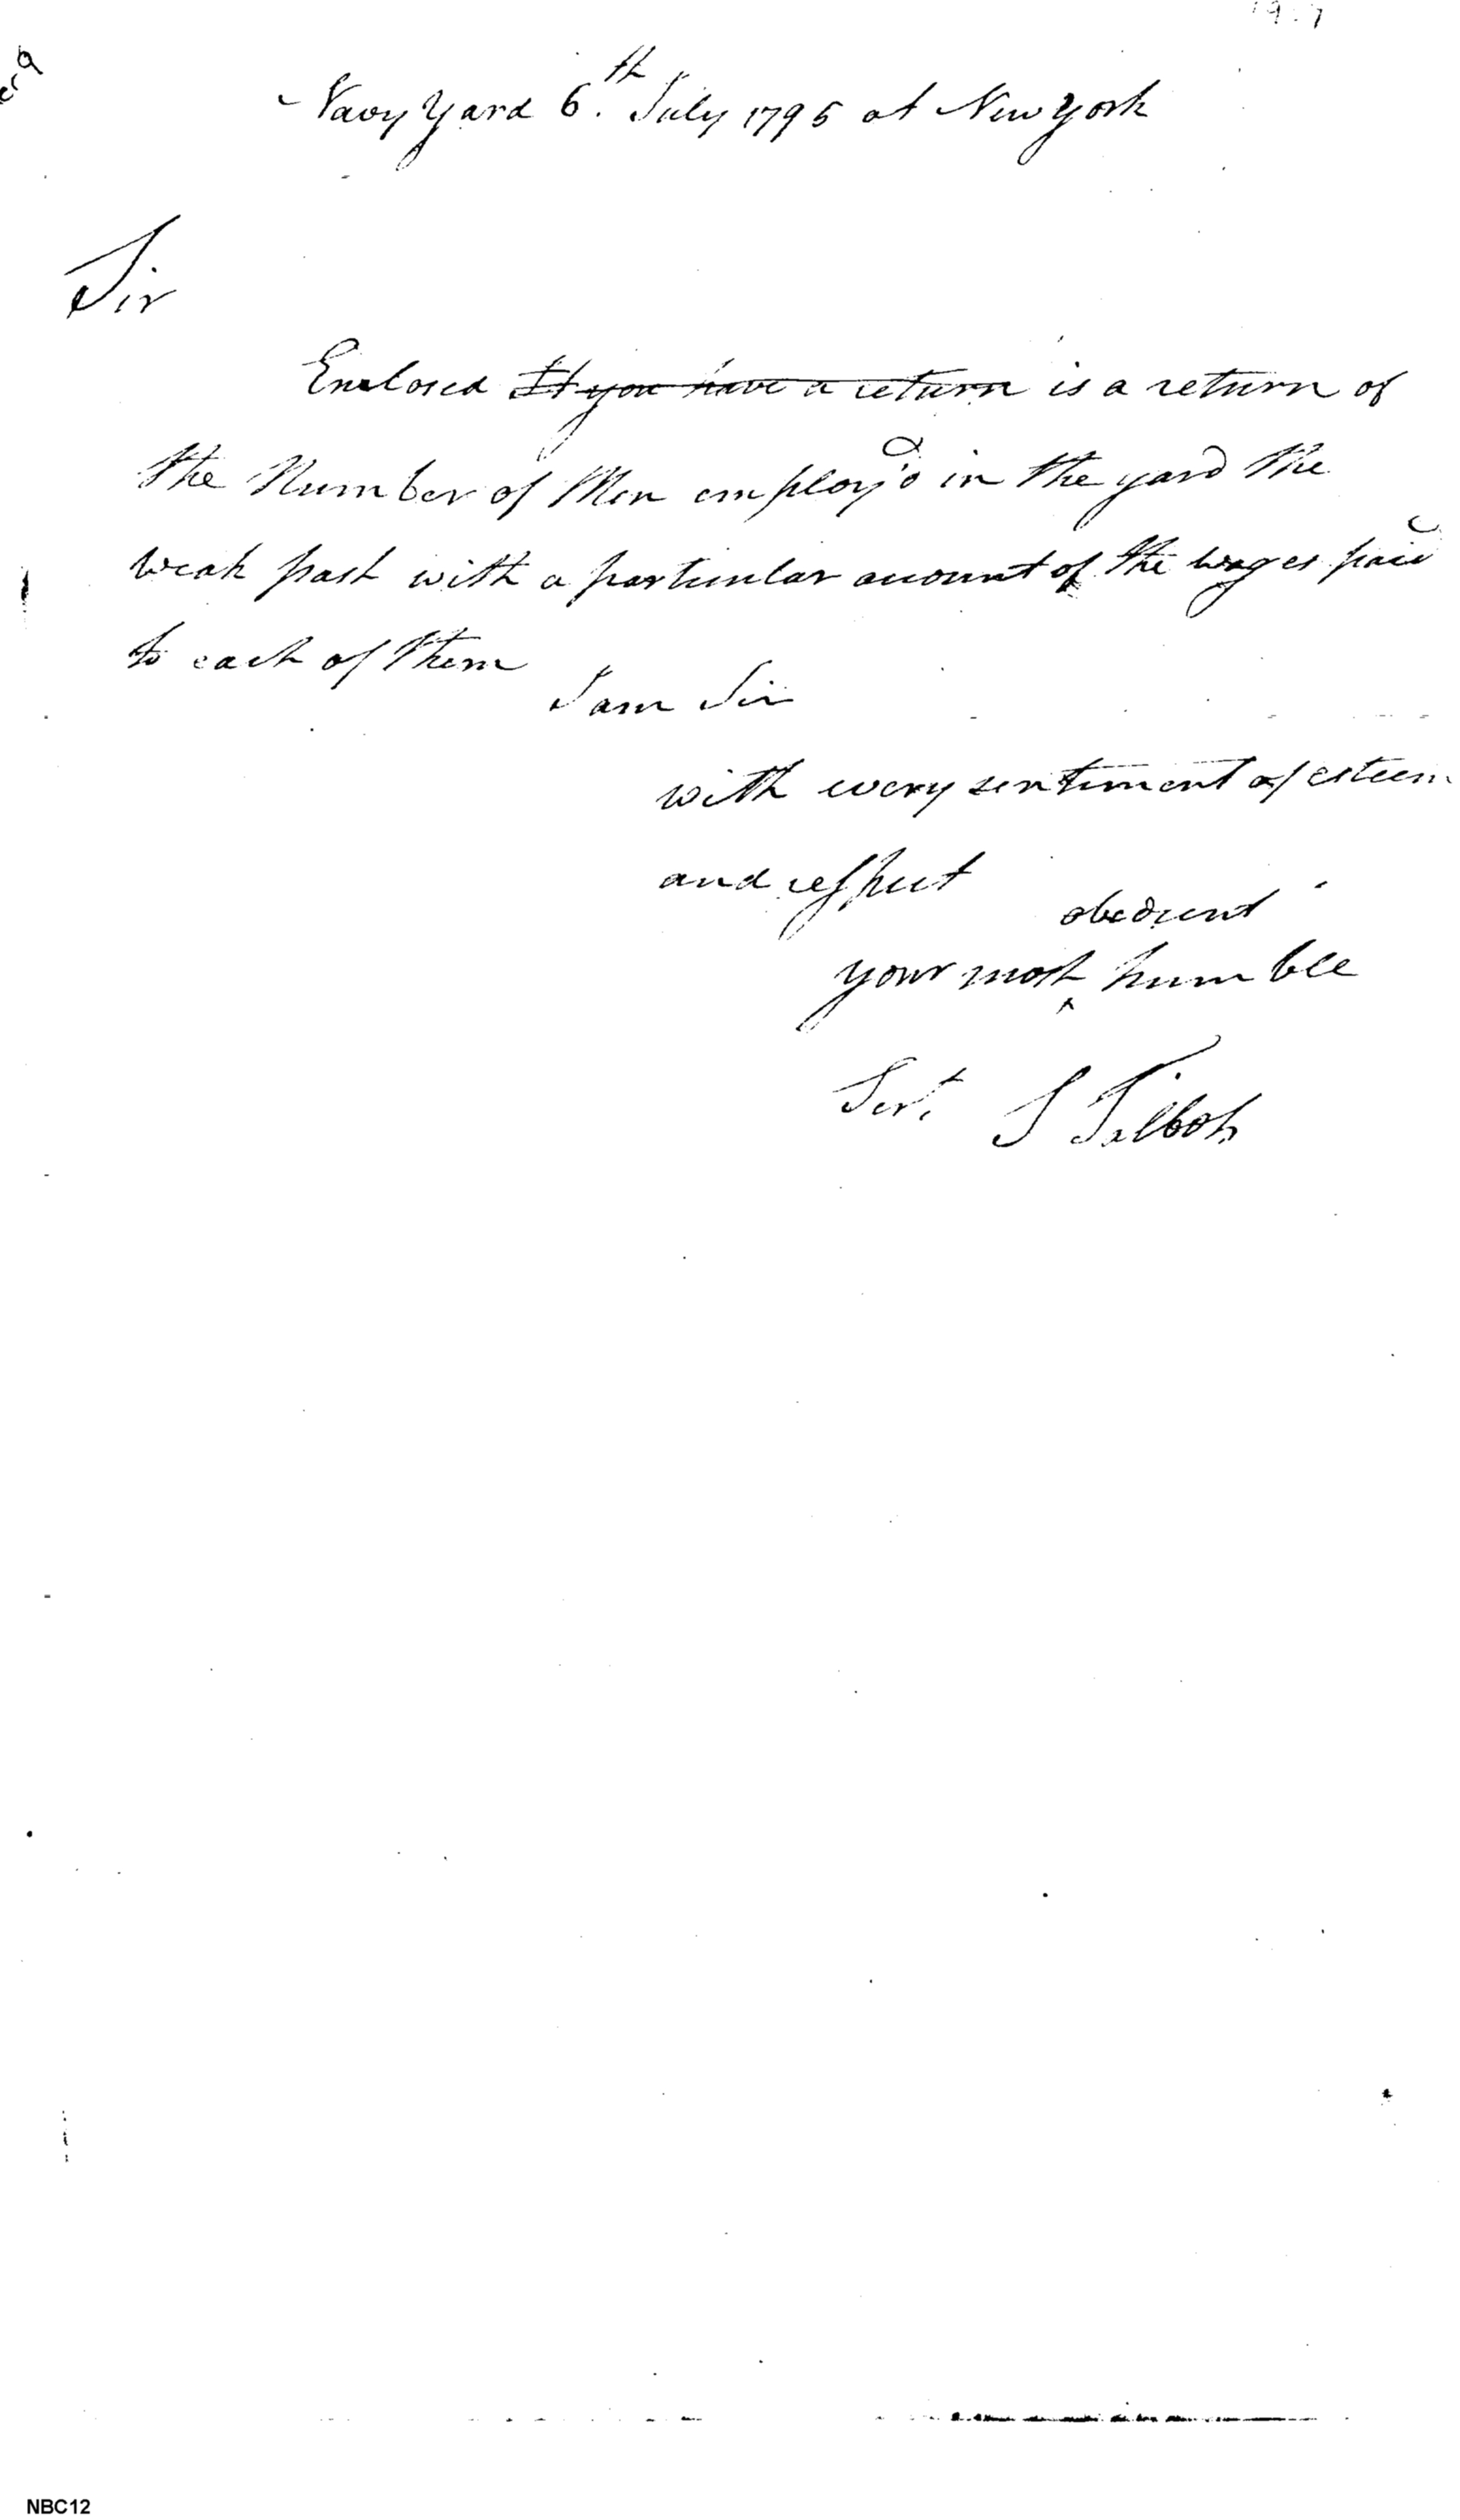 Navy Yard 6.th July 1795 at New York
Sir
Enclosed It you have a return is a return of
the Number of Men employ'd in the yard the
weak past with a particular account of the wages paid
to each of them
I am Sir
with every sentiment of esteem
and respect
obedient
your most ^ humble
Servt. S Talbot
NBC12